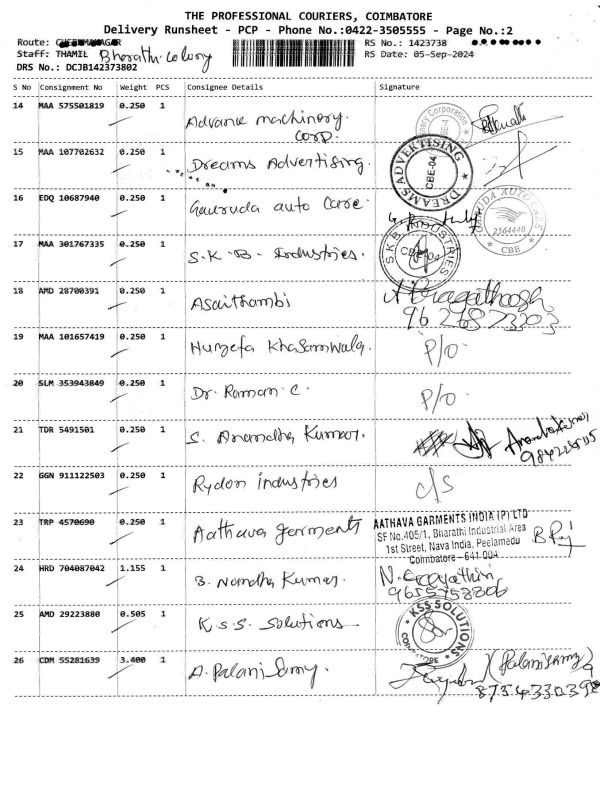 THE PROFESSIONAL COURIERS, COIMBATORE
Delivery Runsheet - PCP - Phone No.:0422-3505555 - Page No.:2
Route:
RS No.: 1423738
Staff: THAMIL Bharathi colony
RS Date: 05-Sep-2024
DRS No.: DCJB142373802
S No Consignment No Weight PCS Consignee Details Signature
14 MAA 575501819 0.250 1 Advance machinery corp.
15 MAA 107702632 0.250 1 Dreams Advertising. DREAMS ADVERTISING CBE-04
16 EDQ 10687940 0.250 1 Gauruda auto care. GARUDA AUTO 2564440 CBB
17 MAA 301767335 0.250 1 S.K.B. Industries. S.K.B. INDUSTRIES
18 AMD 28700391 0.250 1 Asaithambi
19 MAA 101657419 0.250 1 Huzefa Khasamwala. P/O
20 SLM 353943849 0.250 1 Dr. Raman C. P/O
21 TDR 5491501 0.250 1 S. Anandha Kumar.
22 GGN 911122503 0.250 1 Rydon industries C/S
23 TRP 4570690 0.250 1 Aathava garments
AATHAVA GARMENTS INDIA (P) LTD
SF No.405/1, Bharathi Industrial Area
1st Street, Nava India, Peelamedu
Coimbatore - 641 004
24 HRD 704087042 1.155 1 B. Nandha Kumar.
25 AMD 29223880 0.505 1 K.S.S. Solutions KSS SOLUTIONS COIMBATORE
26 CDM 55281639 3.400 1 A. Palani Samy. (Palanisamy)